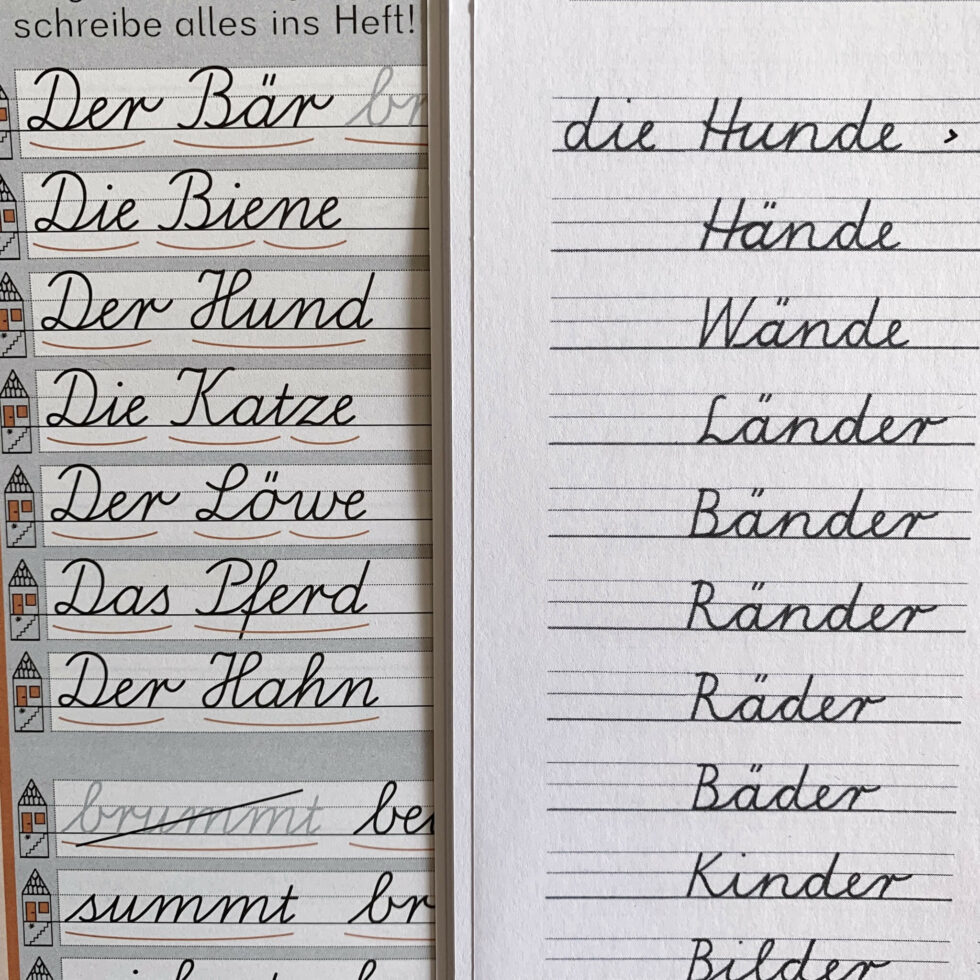 schreibe alles ins Heft!
Der Bär br
Die Biene
Der Hund
Die Katze
Der Löwe
Das Pferd
Der Hahn
brummt be
summt br
die Hunde >
Hände
Wände
Länder
Bänder
Ränder
Räder
Bäder
Kinder
Bilder